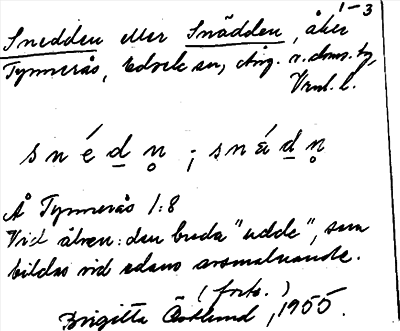 1-3
Snedden eller Snädden, åker
Tynnerås, Edsele sn, Ång. v. doms. tg,
Vrml. l.
snédn ; snǽdn
Å Tynnerås 1:8
Vid älven: den breda "udde", som
bildas vid edans avsmalnande.
(forts.)
Brigitta Östlund, 1955.